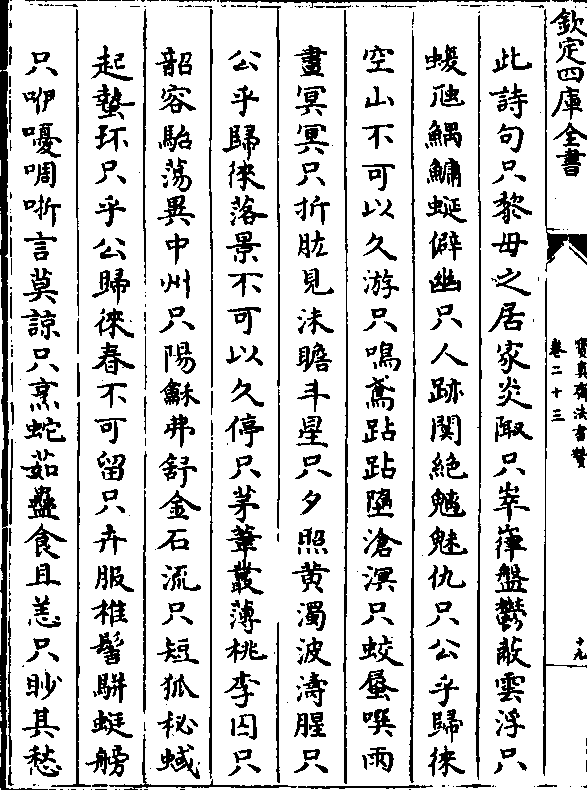 欽定四庫全書
寶真齋法書贊
卷二十三
十九
此詩句只黎母之居家炎陬只崒嵂盤鬱蔽雲浮只
蝮虺鰅鱅蜒僻幽只人跡闃絶魑魅仇只公乎歸徠
空山不可以久游只鳴鳶跕跕墮滄溟只蛟蜃噀雨
晝冥冥只折肱見沬瞻斗星只夕照黄濁波濤腥只
公乎歸徠落景不可以久停只茅葦叢薄桃李囚只
韶容駘蕩異中州只陽龢弗舒金石流只短狐秘蜮
起蟄环只乎公歸徠春不可留只卉服椎髻駢蜓艕
只咿嚘啁哳言莫諒只烹蛇茹蠱食且恙只眇其愁